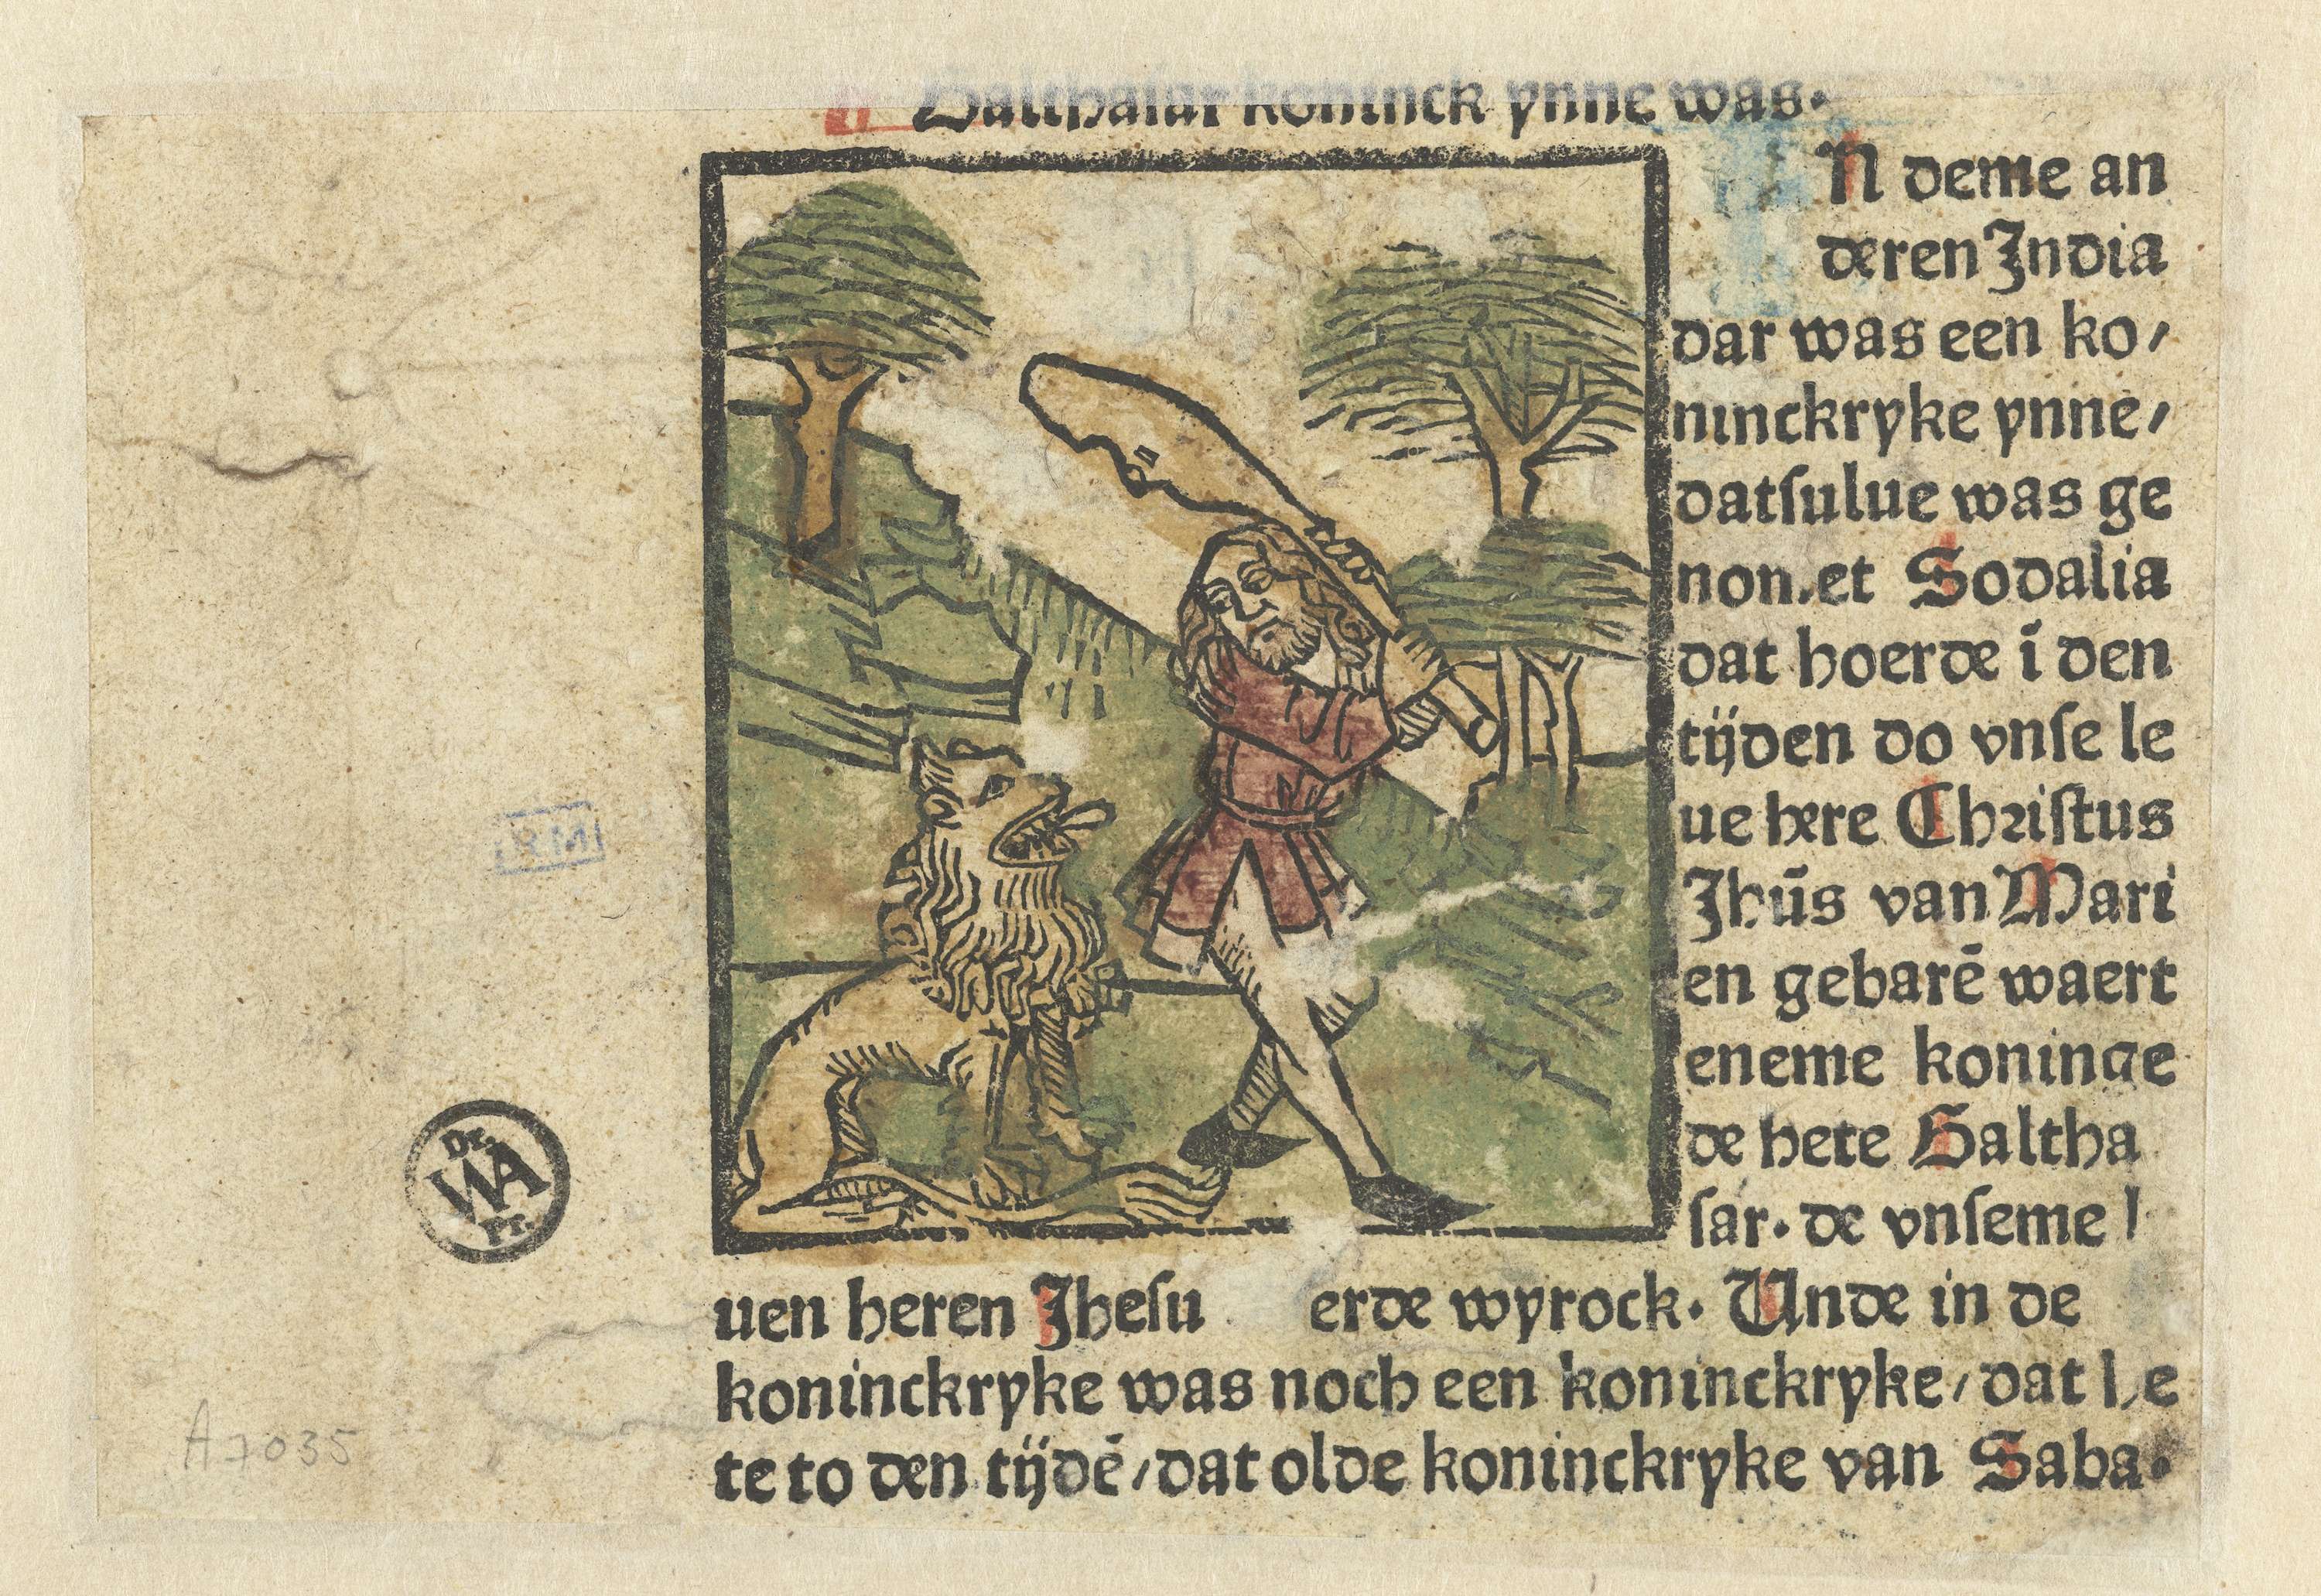 Balthasar koninck ynne was.
N deme an
deren India
dar was een ko/
ninckryke ynne/
datſulue was ge
non.et Sodalia
dat hoerde ī den
tijden do vnſe le
ue here Chriſtus
Jhūs van Mari
en gebarē waert
eneme koninge
de hete Baltha
ſar. de vnſeme l
uen heren Jheſu erde wyrock. Unde in de
koninckryke was noch een koninckryke/dat he
te to den tijdē/dat olde koninckryke van Saba.
RM
Dr.
WA
Pr.
A 7035